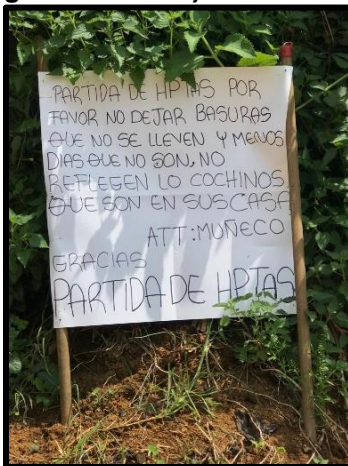 PARTIDA DE HPTAS POR
FAVOR NO DEJAR BASURAS
QUE NO SE LLEVEN Y MENOS
DIAS QUE NO SON, NO
REFLEGEN LO COCHINOS
QUE SON EN SUS CASA
ATT: MUÑECO
GRACIAS
PARTIDA DE HPTAS